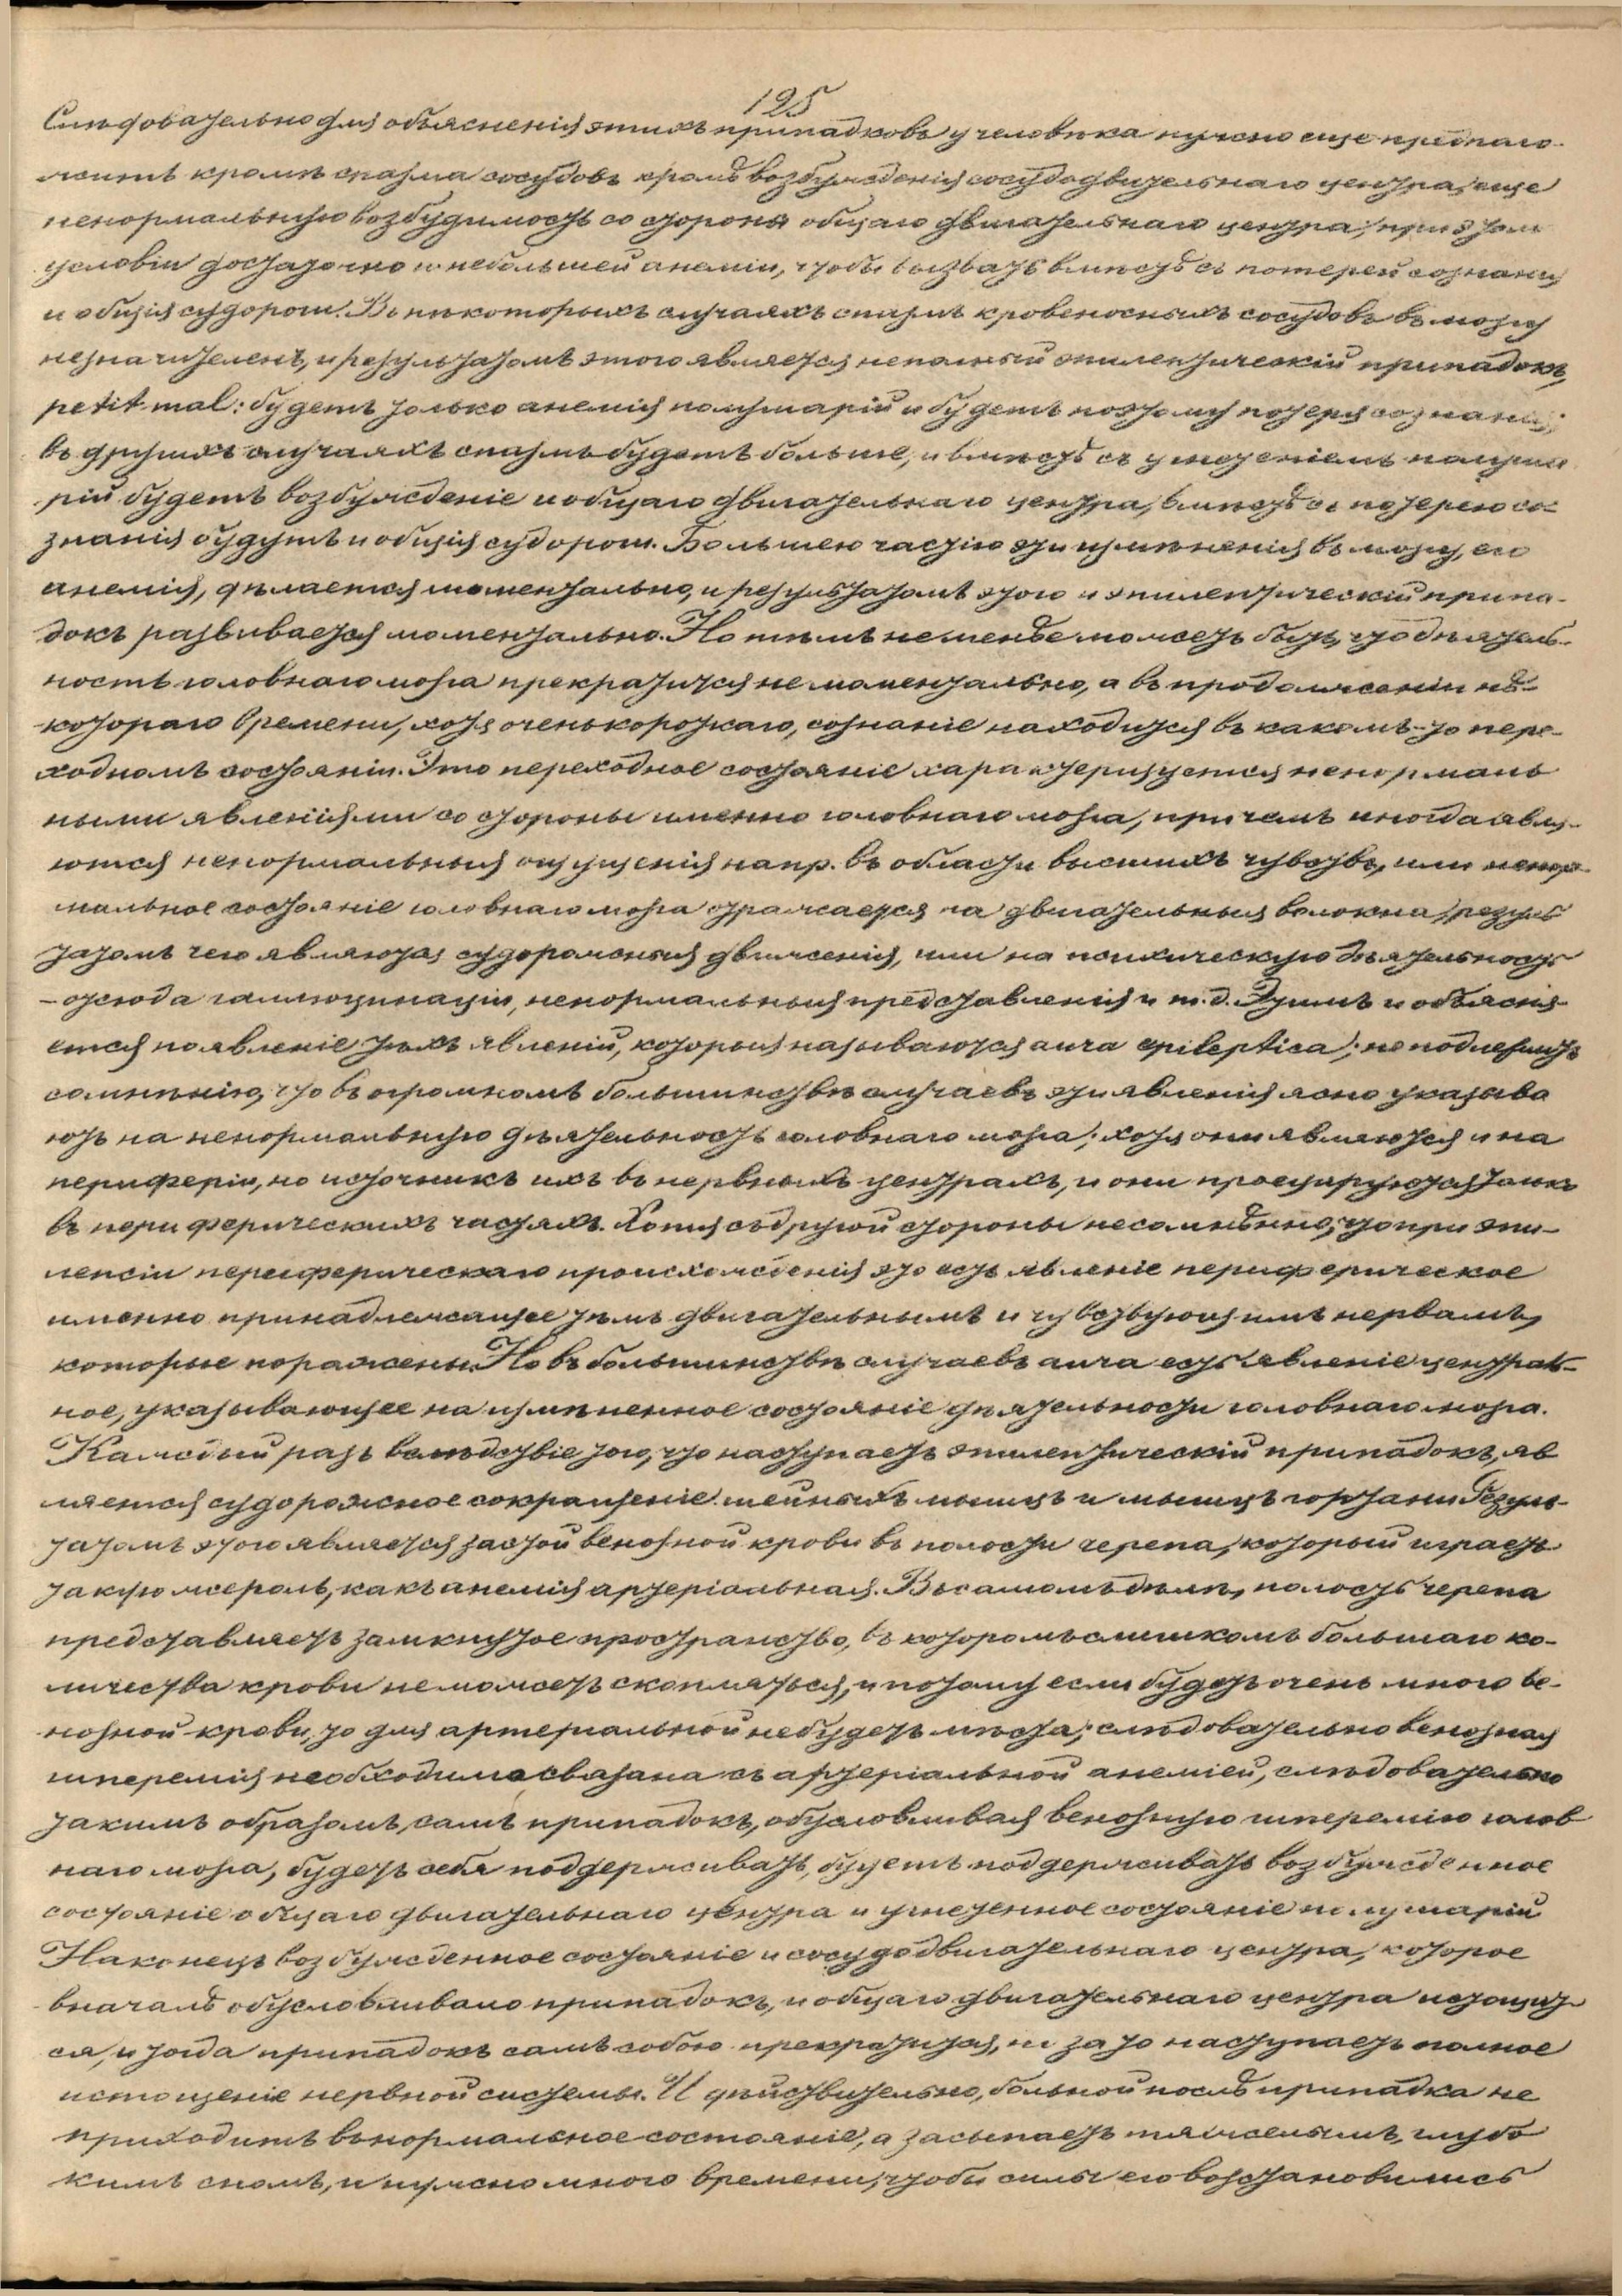 125
Слѣдовательно для объясненія этихъ припадковъ у человѣка нужно еще предпало-
жить кромѣ спазма сосудовъ кромѣ возбужденія сосудодвигательнаго центра, еще
ненормальную возбудимость со стороны общаго двигательнаго центра; при этом
условіи достаточно и небольшей анеміи, чтобы вызвать вмѣстѣ съ потерей сознанія
и общія судороги. Въ нѣкоторыхъ случаяхъ спазмъ кровеносныхъ сосудовъ въ мозгу
незначителенъ, и результатомъ этого является неполный эпилептическій припадокъ,
petit mal: будетъ только анемія полушарій и будетъ поэтому потеря сознанія;
въ другихъ случаяхъ спазмъ будетъ больше, и вмѣстѣ съ угнетеніемъ полуша
рій будетъ возбужденіе и общаго двигательнаго центра, вмѣстѣ съ потерею со-
знанія будутъ и общія судороги. Большею частію эти измѣненія въ мозгу, его
анемія, дѣлается моментально, и результатомъ этого и эпилептическій припа-
докъ развивается моментально. Но тѣмъ неменѣе можетъ быть, что дѣятель-
ность головнаго мозга прекратится не моментально, а въ продолженіи нѣ-
котораго времени, хотя очень короткаго, сознаніе находится въ какомъ-то пере-
ходномъ состояніи. Это переходное состояніе характеризуется ненормаль
ными явленіями со стороны именно головнаго мозга, причемъ иногда явля-
ются ненормальныя ощущенія напр. въ области высшихъ чувствъ, или ненор-
мальное состояніе головнаго мозга отражается на двигательныя волокна, резуль
татомъ чего являются судорожныя движенія, или на психическую дѣятельность
– отсюда галлюцинаціи, ненормальныя представленія и т.д. Этимъ и объясня-
ется появленіе тѣхъ явленій, которыя называются aura epileptica; неподлежитъ
сомнѣнію, что въ огромномъ большинствѣ случаевъ эти явленія ясно указыва
ютъ на ненормальную дѣятельность головнаго мозга; хотя они являются и на
периферіи, но источникъ ихъ въ нервныхъ центрахъ, и они проэцируются только
въ периферическихъ частяхъ. Хотя съ другой стороны несомнѣнно, что при эпи-
лепсіи периферическаго происхожденія это есть явленіе периферическое
именно принадлежащее тѣмъ двигательнымъ и чувствующимъ нервамъ,
которые поражены. Но въ большинствѣ случаевъ aura есть явленіе централь-
ное, указывающее на измѣненное состояніе дѣятельности головнаго мозга.
Каждый разъ вслѣдствіе того, что наступаетъ эпилептическій припадокъ, яв
ляется судорожное сокращеніе шейныхъ мышцъ и мышцъ гортани. Резуль-
татомъ этого является застой венозной крови въ полости черепа, который играетъ
такую же роль, какъ анемія артеріальная. Въ самомъ дѣлѣ, полость черепа
представляетъ замкнутое пространство, въ которомъ слишкомъ большаго ко-
личества крови не можетъ скопляться, и потому если будетъ очень много ве-
нозной крови, то для артериальной небудетъ мѣста; слѣдовательно венозная
гиперемія необходимо связана съ артеріальной анеміей, слѣдовательно
такимъ образомъ, самъ припадокъ, обусловливая венозную гиперемію голов
наго мозга, будетъ себя поддерживать, будетъ поддерживать возбужденное
состояніе общаго двигательнаго центра и угнетенное состояніе полушарій
Наконецъ возбужденное состояніе и сосудодвигательнаго центра, которое
вначалѣ обусловливало припадокъ, и общаго двигательнаго центра истощит-
ся, и тогда припадокъ самъ собою прекратится, но зато наступаетъ полное
истощеніе нервной системы. И дѣйствительно, больной послѣ припадка не
приходитъ въ нормальное состояніе, а засыпаетъ тяжелымъ, глубо
кимъ сномъ, и нужно много времени, чтобы силы его возстановились